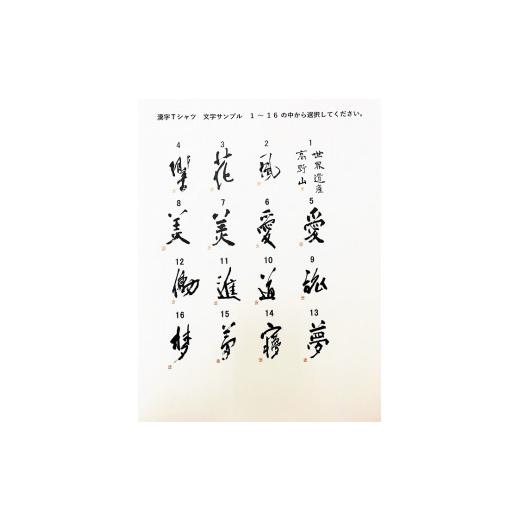 漢字Tシャツ　文字サンプル　1～16の中から選択してください。
1
世界遺産
高野山
2
風
3
花
4
5
愛
6
愛
7
美
8
美
9
10
道
11
進
12
働
13
夢
14
15
夢
16
梦